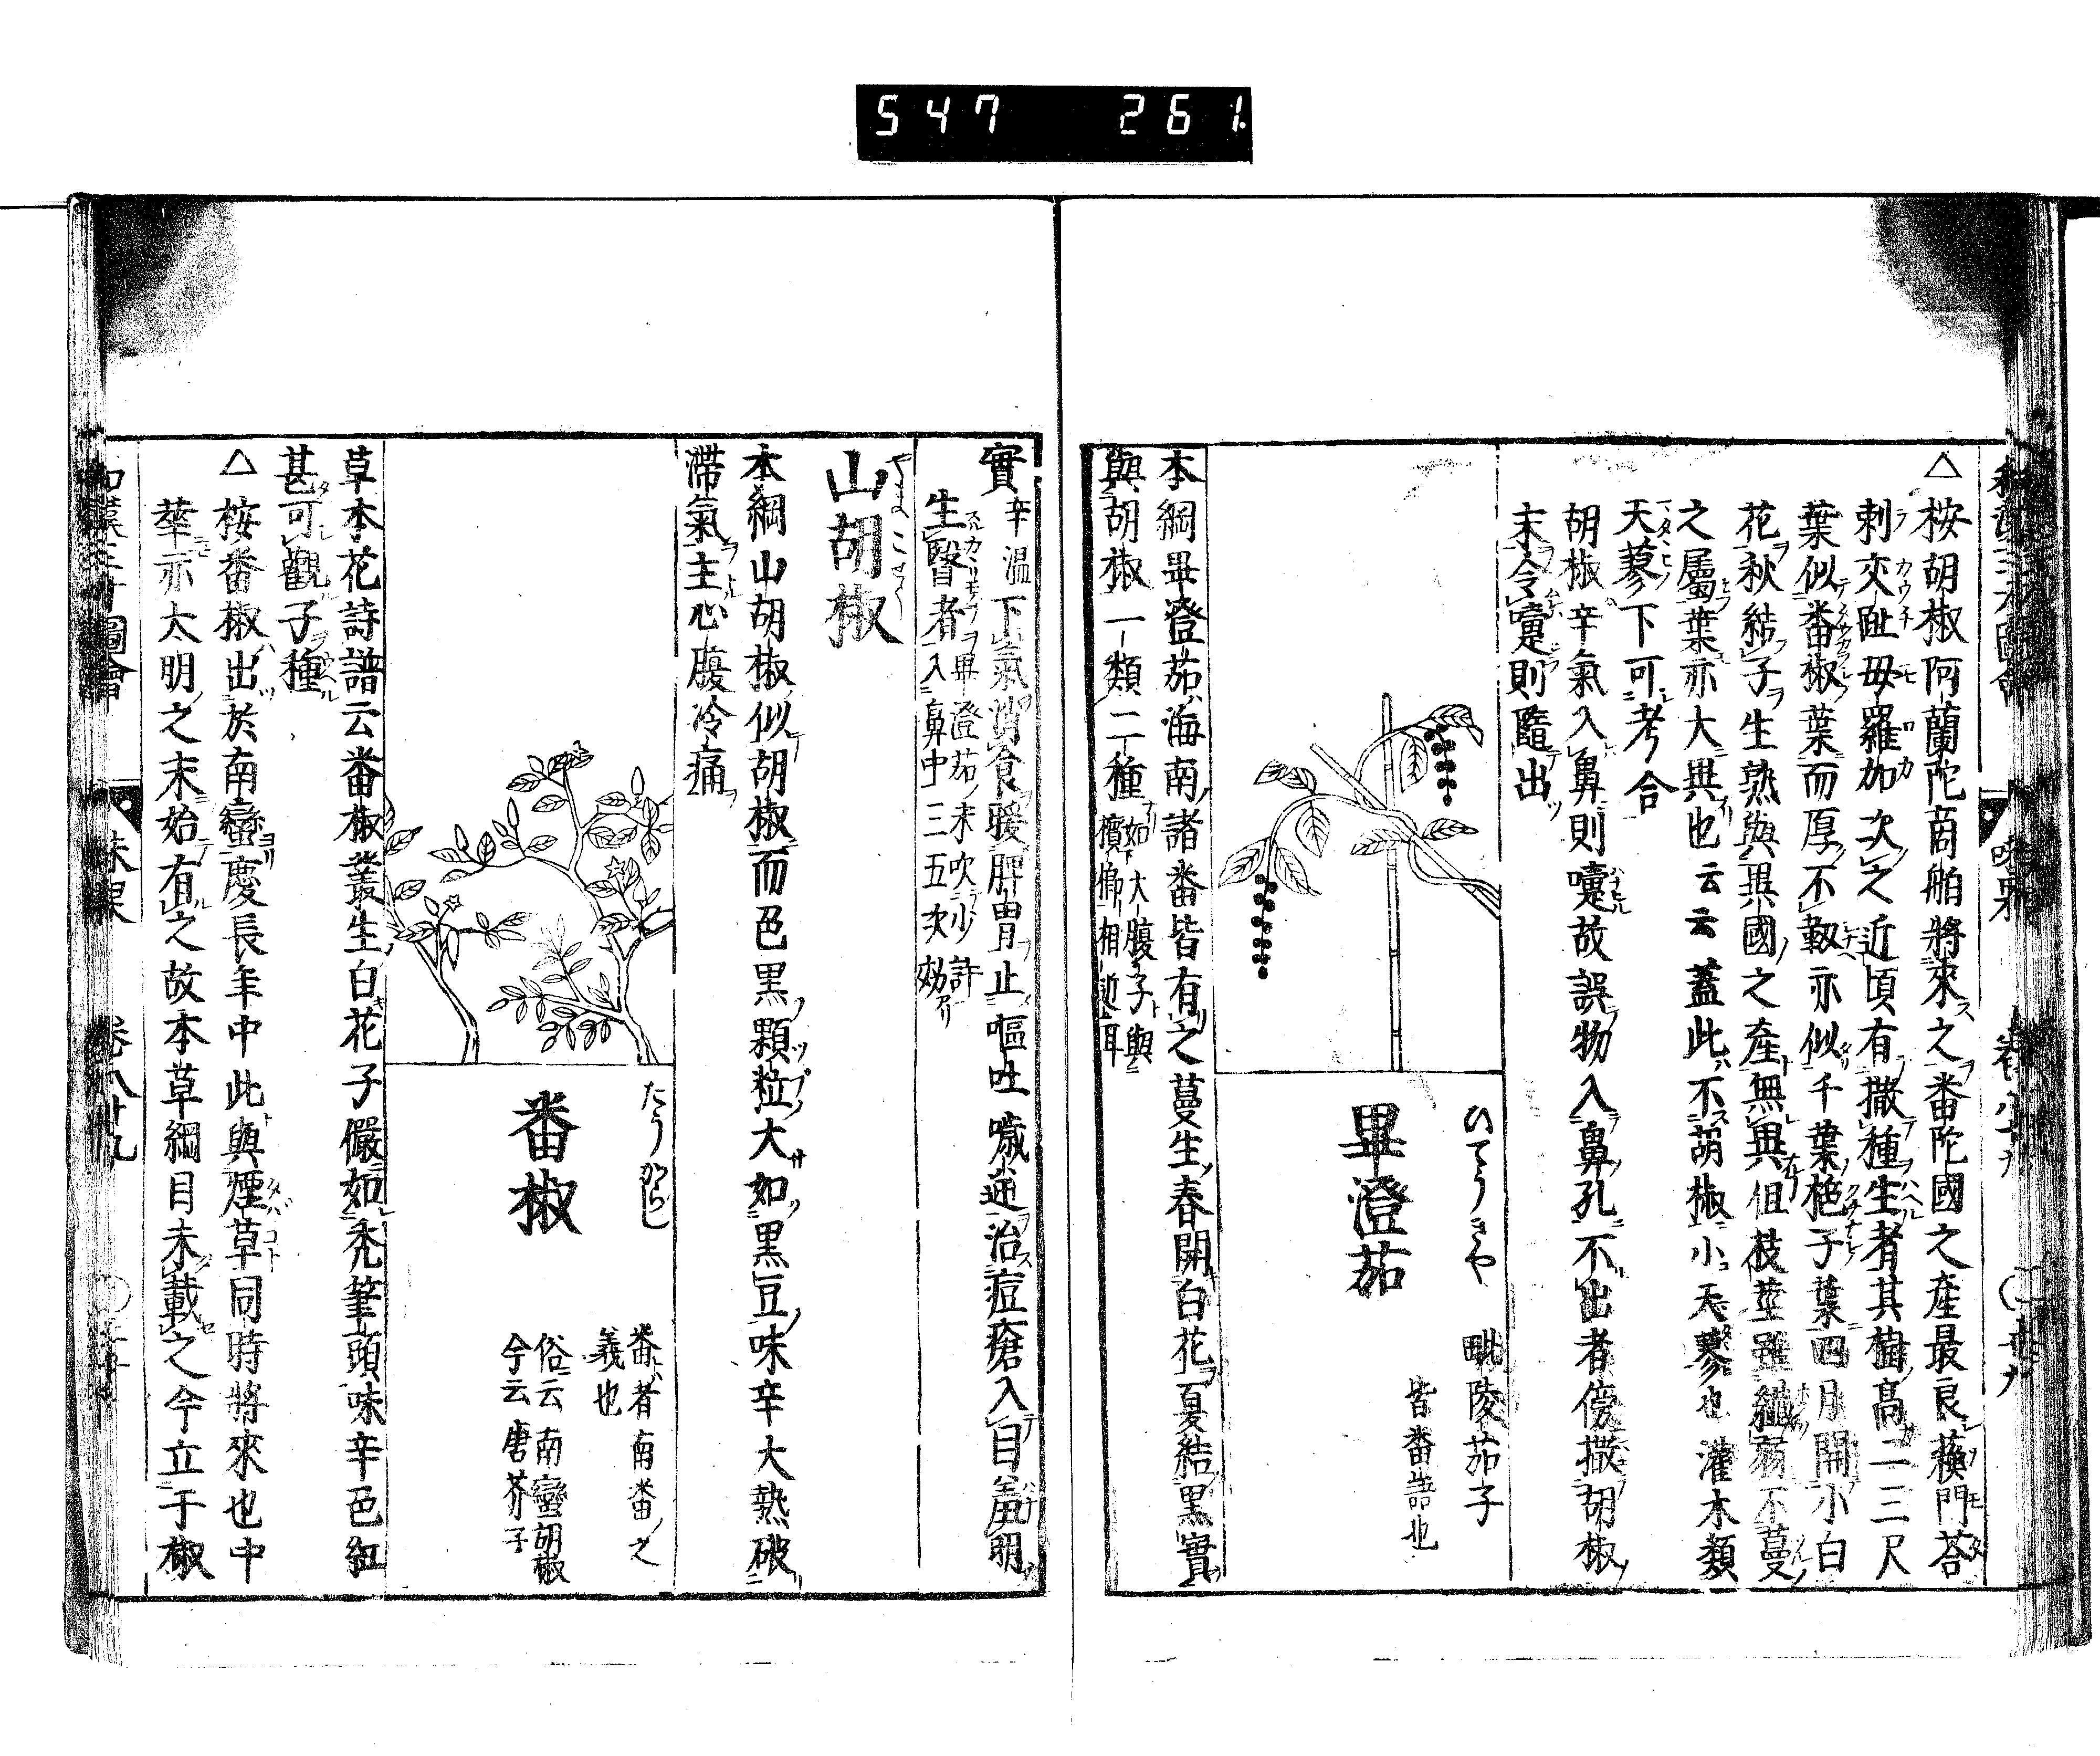 547 261
△桉胡椒阿蘭陀商舶將來之畨陀國之産最良蘓門荅
剌交趾毋羅加次之近頃有撒種生者其樹髙一二尺
葉似畨椒葉而厚不䩕亦似千葉梔子葉四月開小白
花秋結子生熟與異國之産無異但枝莖雖纎弱不蔓
之屬葉亦大異也云云蓋此不胡椒小天蓼也灌木類
天蓼下可考合
胡椒辛氣入鼻則嚔故誤物入鼻孔不出者傍撒胡椒
末令嚔則隨出
ひてうきや
畢澄茄
毗陵茄子
皆畨語也
本綱畢澄茄海南諸畨皆有之蔓生春開白花夏結黒實
與胡椒一類二種
如大腹子與
檳榔相近耳
實辛溫下氣消食暖脾胃止嘔吐噦逆治痘瘡入目羞明
生瞖者
畢澄茄末吹少許
入鼻中三五次効
やまこせう
山胡椒
本綱山胡椒似胡椒而色黒顆粒大如黒豆味辛大熱破
滯氣主心腹冷痛
たうがらし
畨椒
畨者南畨之
義也
俗云南蠻胡椒
今云唐芥子
草本花詩譜云畨椒叢生白花子儼如禿筆頭味辛色紅
甚可觀子種
△桉畨椒出於南蠻慶長年中此與煙草同時將來也中
華亦大明之末始有之故本草綱目未載之今立于椒